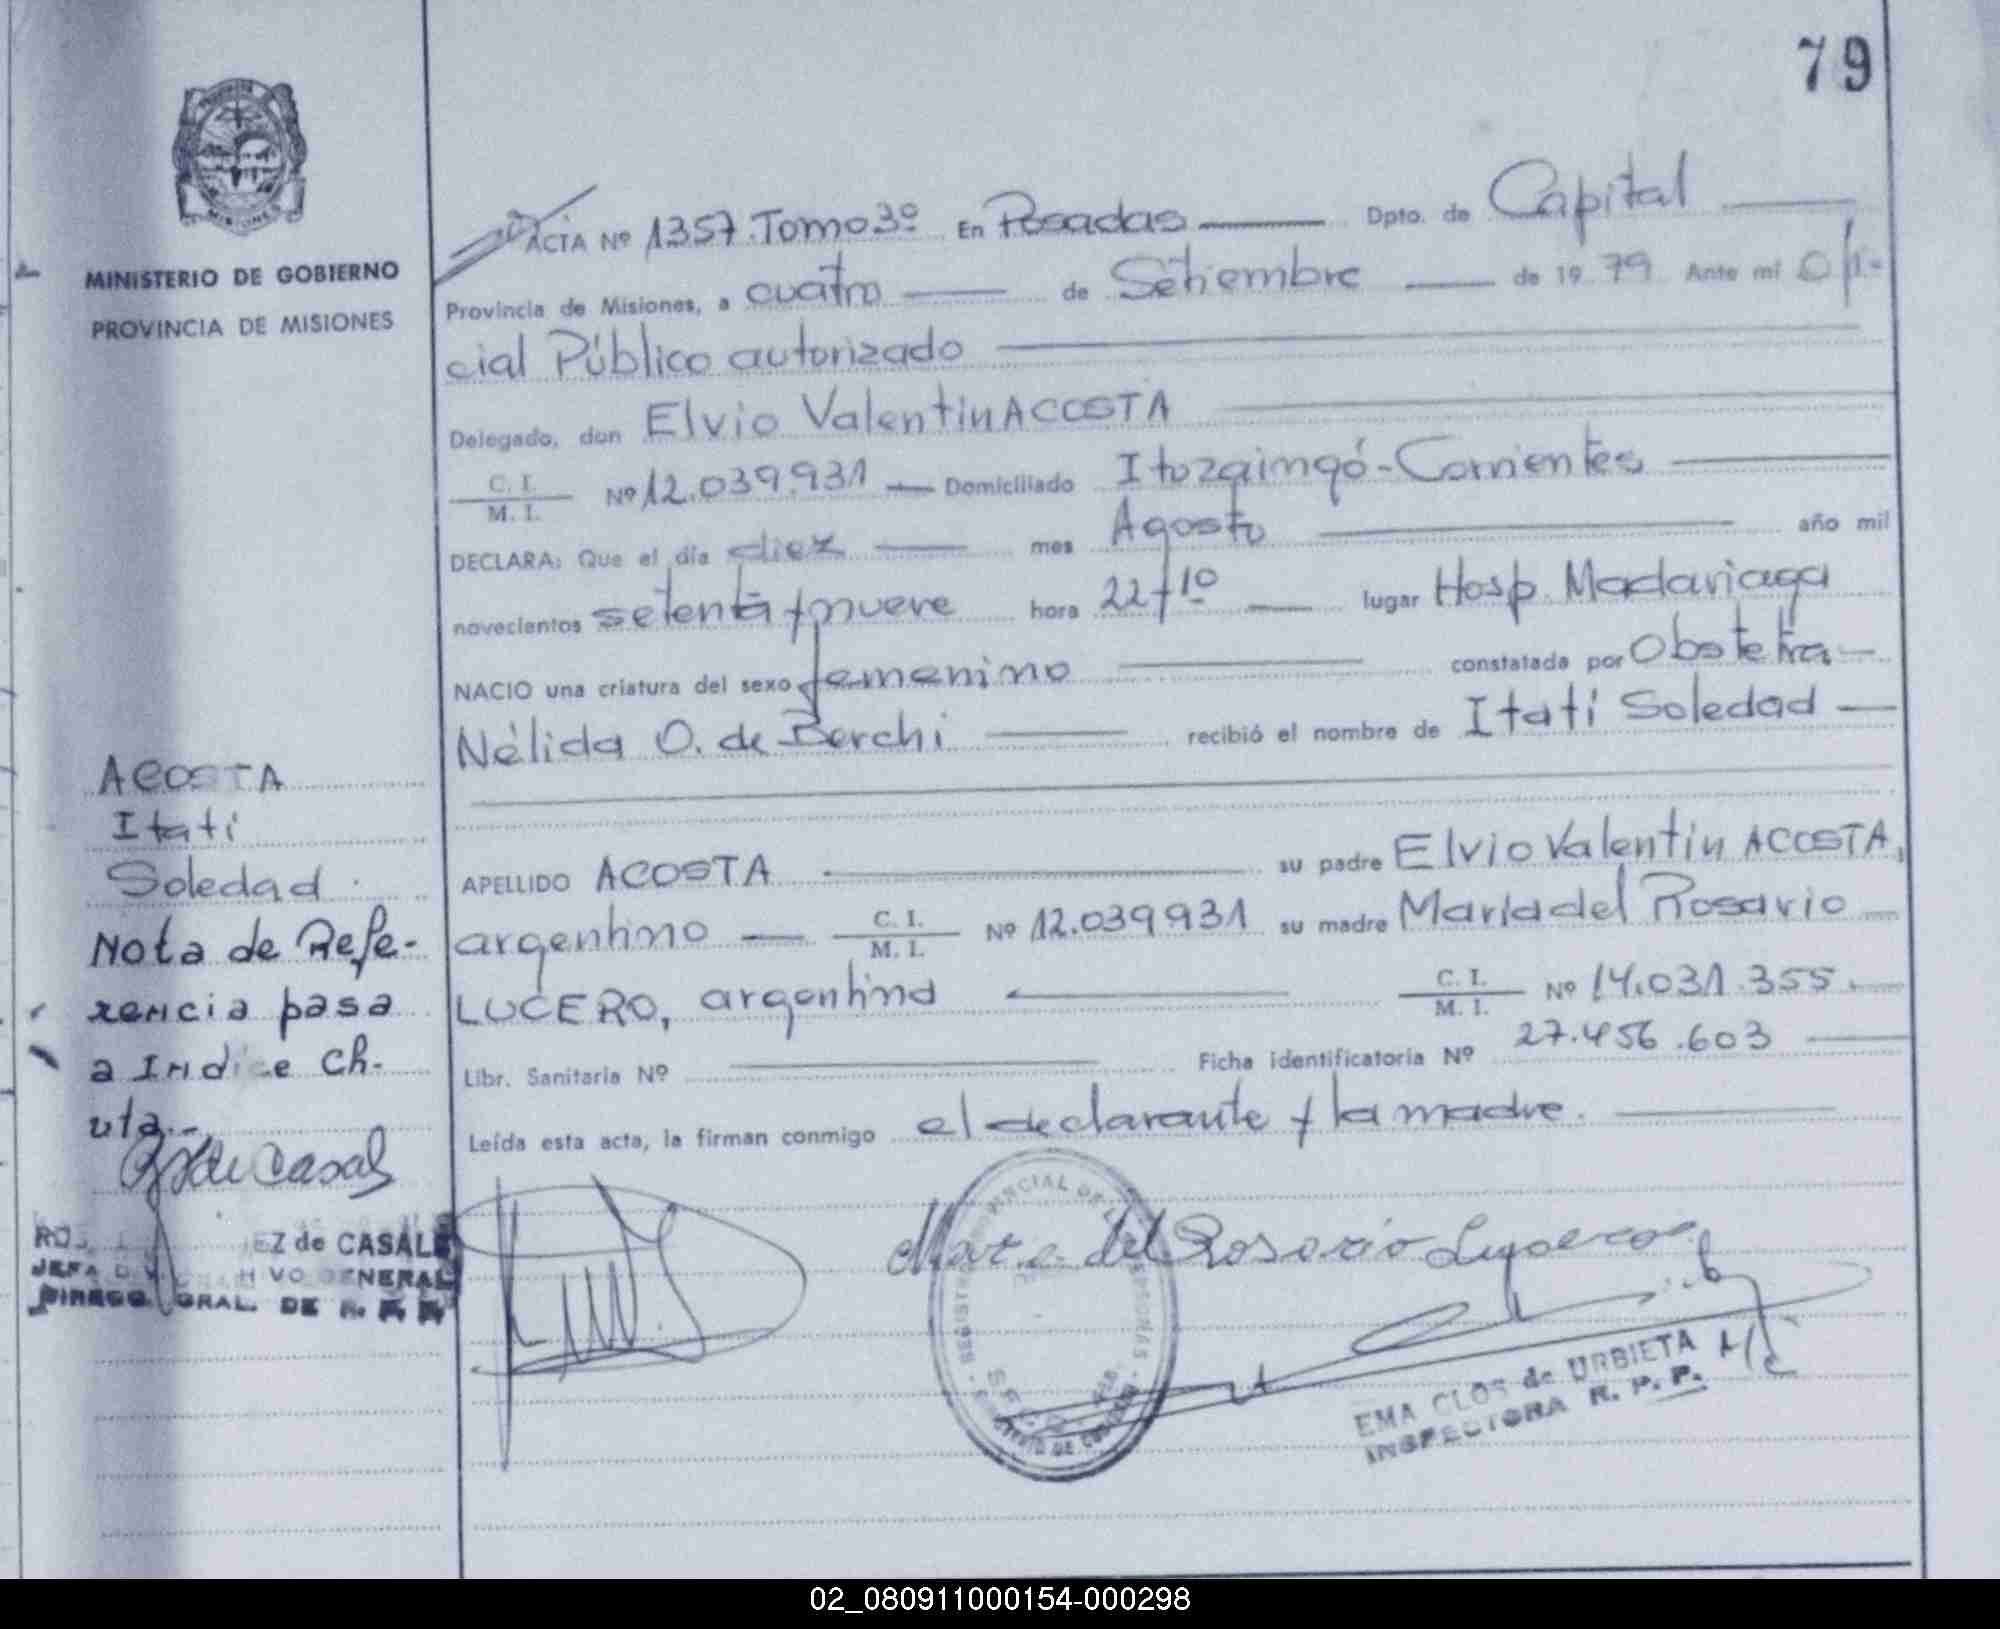 79
MISIONES
MINISTERIO DE GOBIERNO
PROVINCIA DE MISIONES
ACTA Nº 1357. Tomo 3º En Posadas Dpto. de Capital
Provincia de Misiones, a cuatro de Setiembre de 19 79 Ante mí Ofi-
cial Público autorizado
Delegado, don Elvio Valentin ACOSTA
C. I.
M. I.
Nº 12.039.931 Domiciliado Ituzaingó - Corrientes
DECLARA: Que el día diez mes Agosto año mil
novecientos setenta y nueve hora 22 y 10 lugar Hosp. Madariaga
NACIO una criatura del sexo femenino constatada por Obstetra
Nélida O. de Berchi recibió el nombre de Itatí Soledad
ACOSTA
Itatí
Soledad
Nota de Refe-
rencia pasa
a Indice Ch-
uta.-
APELLIDO ACOSTA su padre Elvio Valentin ACOSTA,
argentino C. I. M. I. Nº 12.039931 su madre María del Rosario
LUCERO, argentina C. I. M. I. Nº 14.031.355
Libr. Sanitaria Nº Ficha identificatoria Nº 27.456.603
Leída esta acta, la firman conmigo el declarante y la madre.
de Casale
EZ de CASALE
JEFA GENERAL
GRAL. DE R.
Maria del Rosario Lucero
EMA CLOS de URBIETA A/C
INSPECTORA R. P. P.
02_080911000154-000298